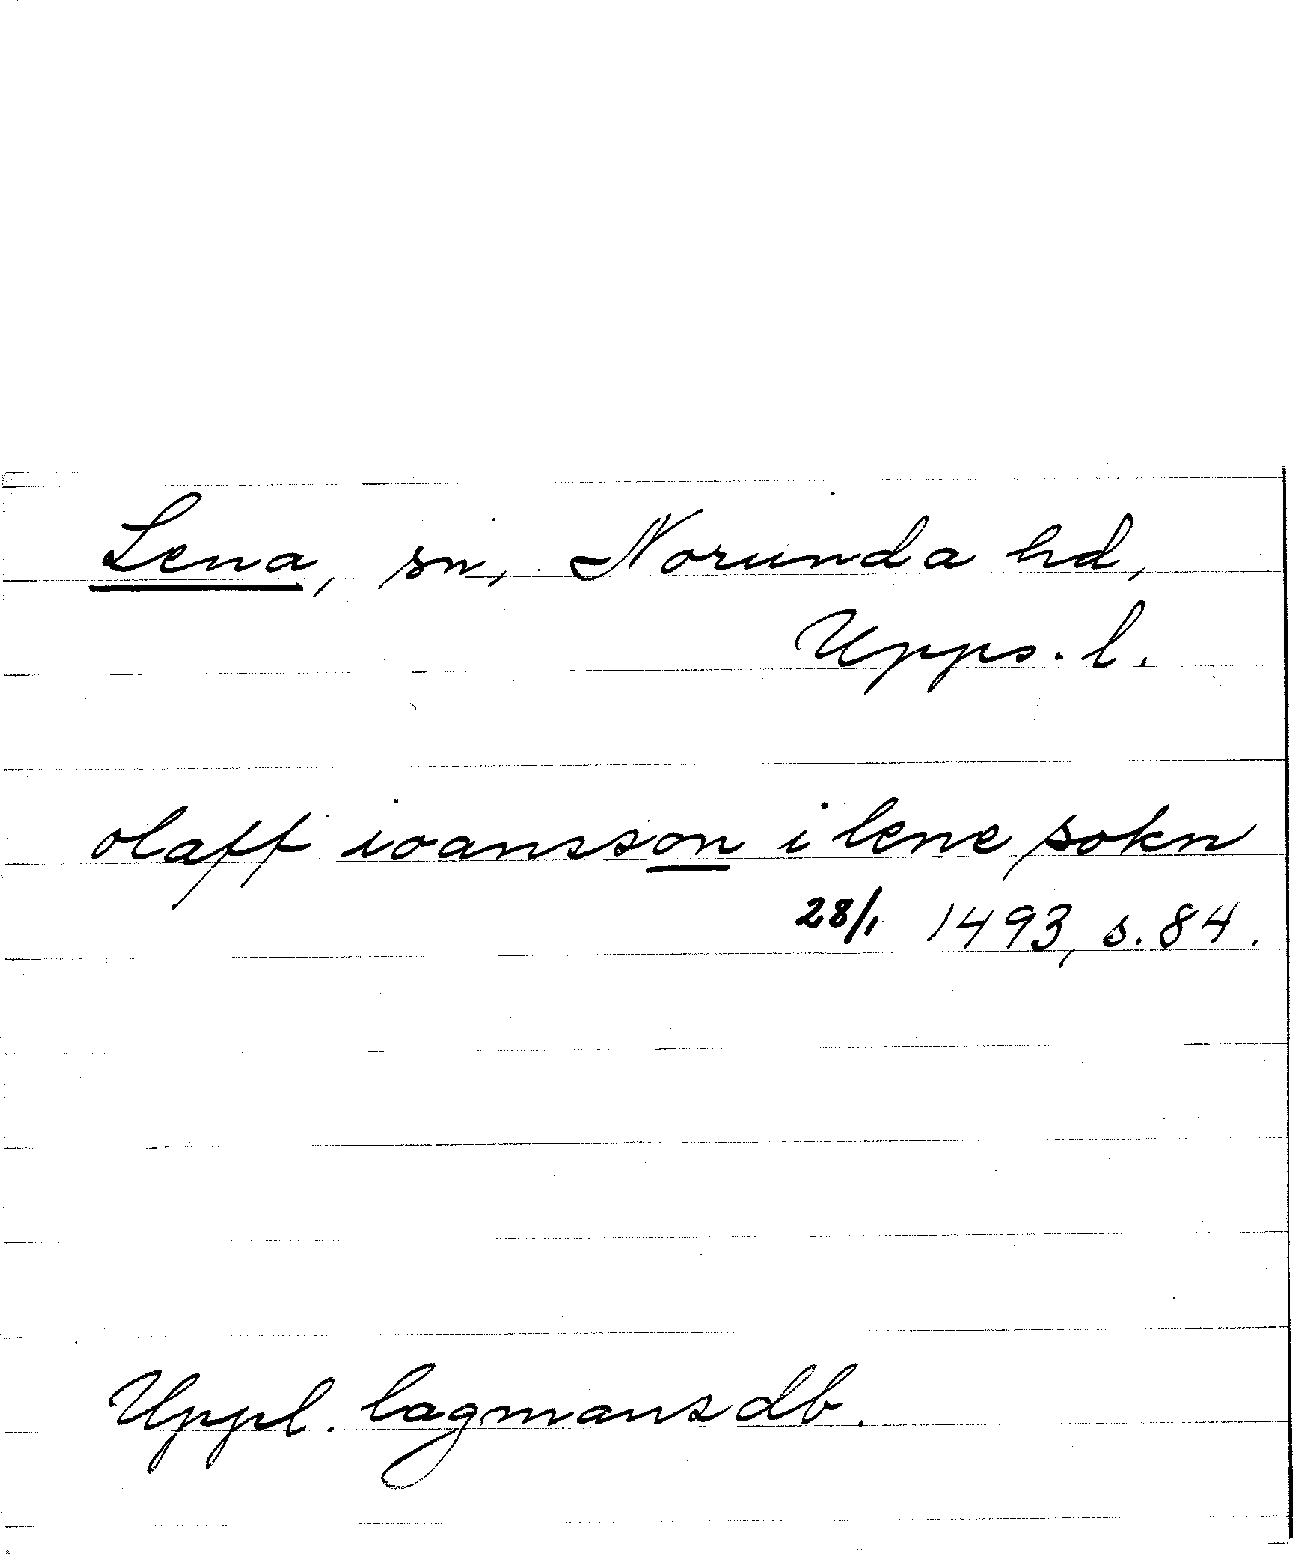 Lena, sn, Norunda hd,
Upps. l.
olaff ioansson i lene sokn
28/1 1493, s. 84.
Uppl. lagmansdb.